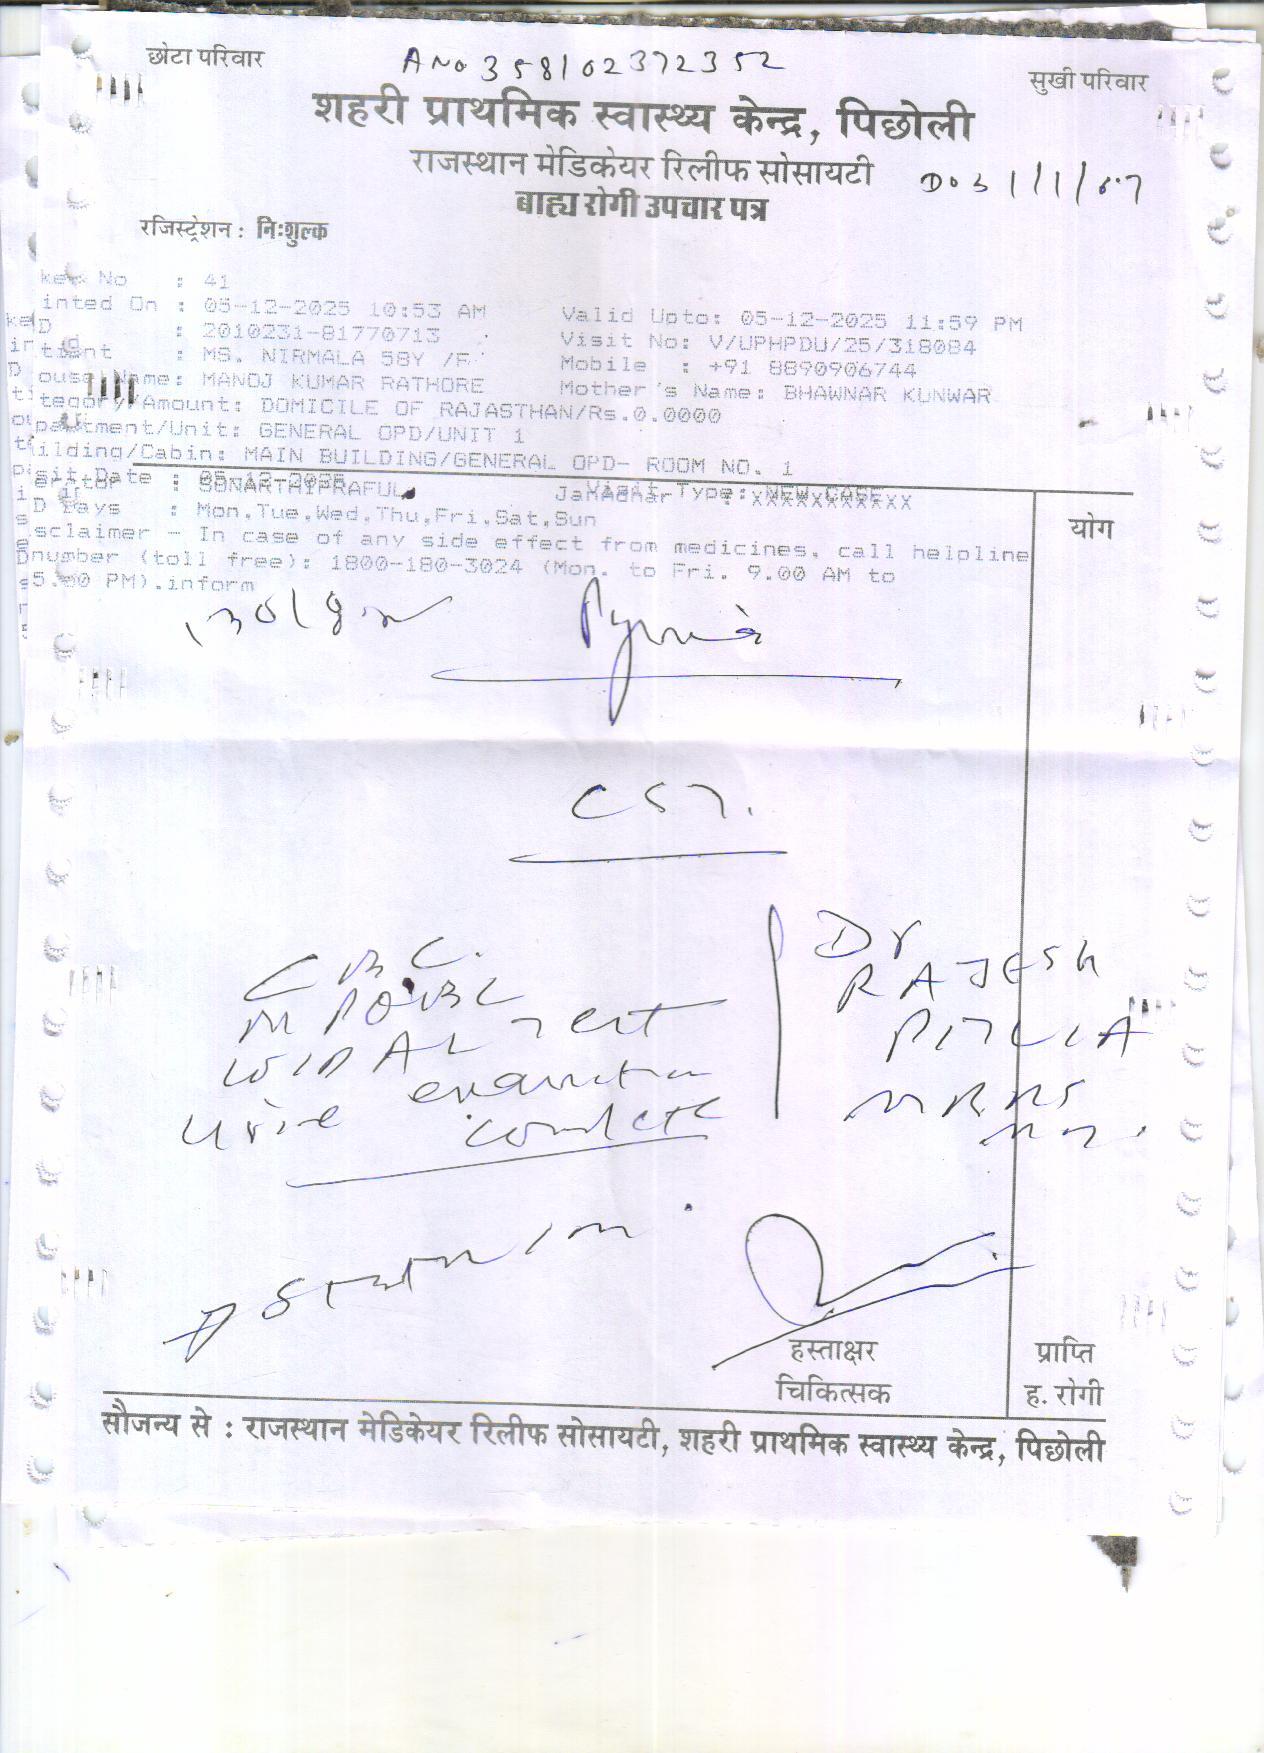 छोटा परिवार
A No 358102372352
सुखी परिवार
शहरी प्राथमिक स्वास्थ्य केन्द्र, पिछोली
राजस्थान मेडिकेयर रिलीफ सोसायटी
बाह्य रोगी उपचार पत्र
रजिस्ट्रेशन : निःशुल्क
ket No : 41
inted On : 05-12-2025 10:53 AM Valid Upto: 05-12-2025 11:59 PM
D : 2010231-81770713 Visit No: V/UPHPDU/25/318084
tient : MS. NIRMALA 58Y /F Mobile : +91 8890906744
Name: MANOJ KUMAR RATHORE Mother's Name: BHAWNAR KUNWAR
tegory/Amount: DOMICILE OF RAJASTHAN/Rs.0.0000
partment/Unit: GENERAL OPD/UNIT 1
ilding/Cabin: MAIN BUILDING/GENERAL OPD- ROOM NO. 1
isit Date : 05-12-2025 Visit Type: NEW CASE
: SONARTHIPRAFUL JanAdhar : XXXXXXXXXXX
D Days : Mon,Tue,Wed,Thu,Fri,Sat,Sun
sclaimer - In case of any side effect from medicines, call helpline
number (toll free): 1800-180-3024 (Mon. to Fri. 9.00 AM to
5.00 PM).inform
योग
CST.
CBC.
WIDAL Test
Urine
Dr
RAJESH
हस्ताक्षर
चिकित्सक
प्राप्ति
ह. रोगी
सौजन्य से : राजस्थान मेडिकेयर रिलीफ सोसायटी, शहरी प्राथमिक स्वास्थ्य केन्द्र, पिछोली